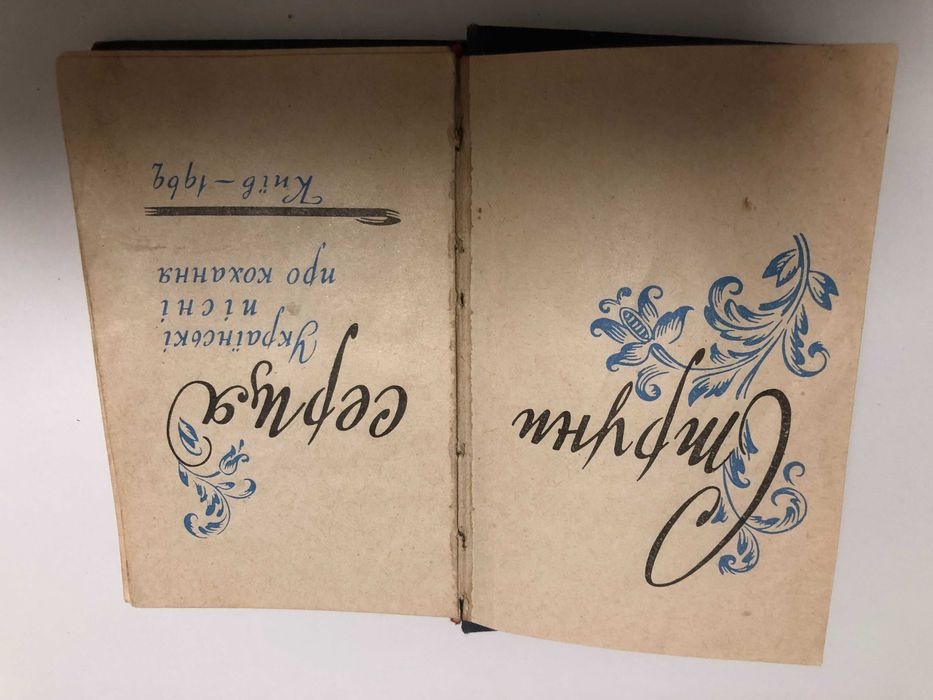 Струни
серця
Українські
пісні
про кохання
Київ – 1969